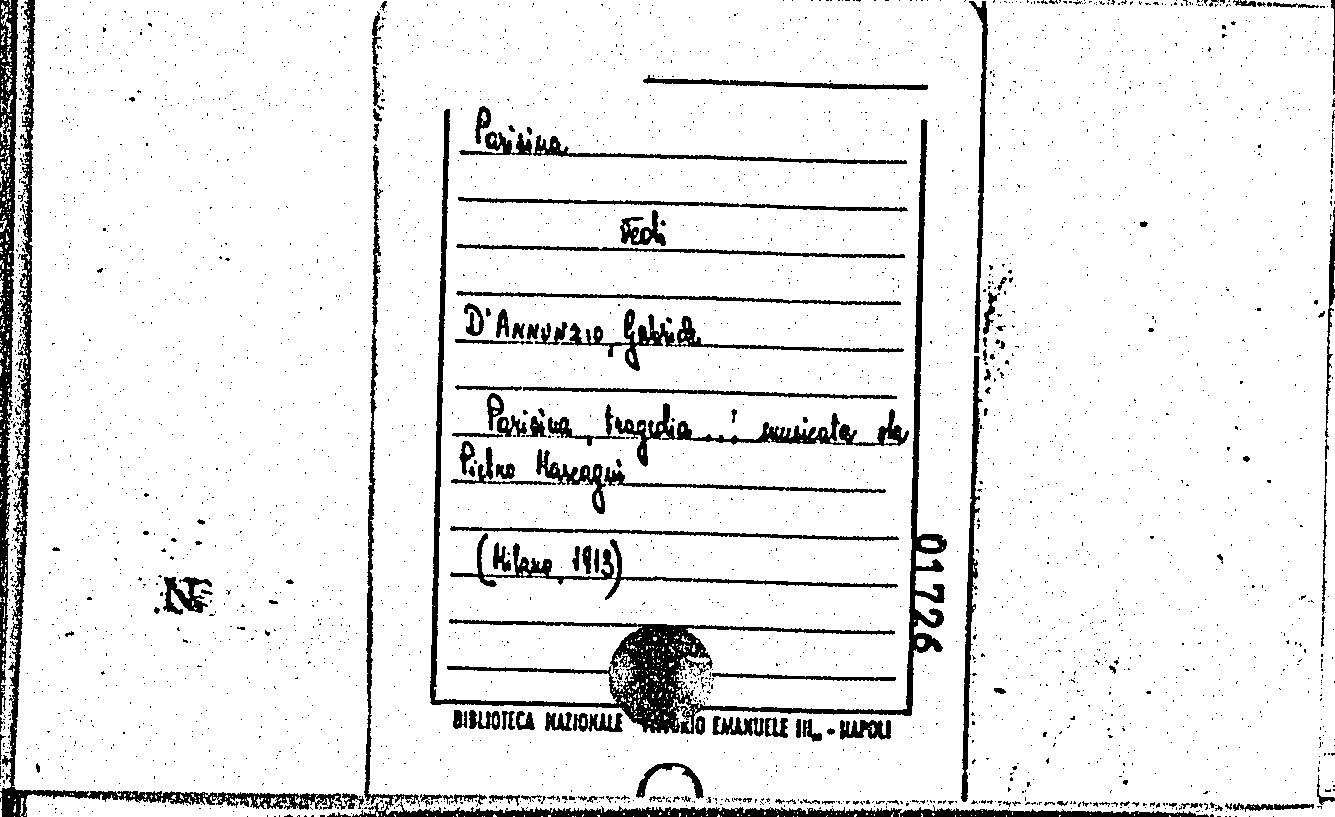 Parisina
Vedi
D'ANNUNZIO, Gabriele
Parisina, tragedia ...! musicata da
Pietro Mascagni
(Milano, 1913)
01726
BIBLIOTECA NAZIONALE VITTORIO EMANUELE III - NAPOLI